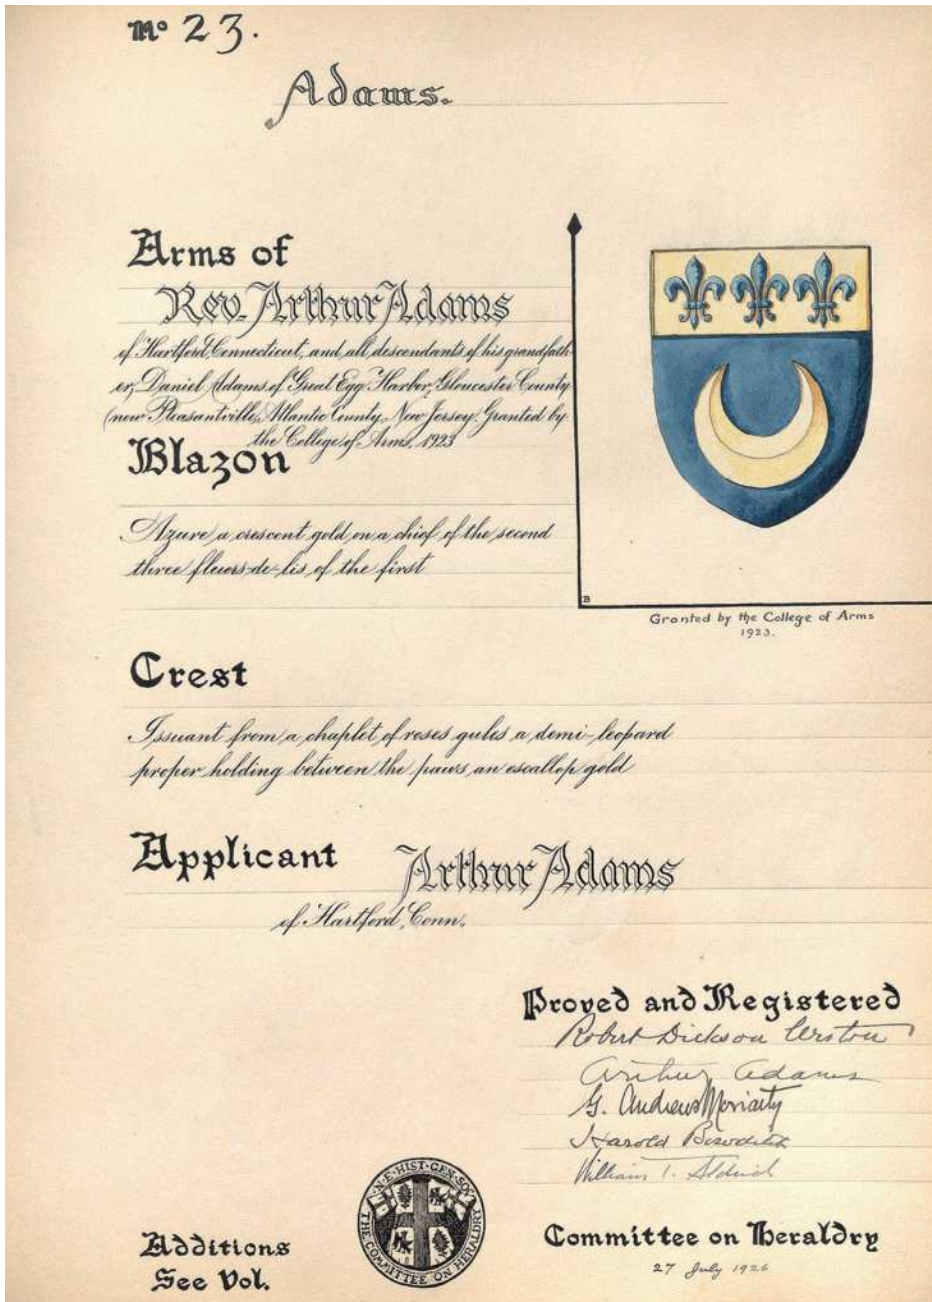 No 23.
Adams.
Arms of
Rev. Arthur Adams
of Hartford, Connecticut, and all descendants of his grandfath-
er, Daniel Adams of Great Egg Harbor, Gloucester County
(now Pleasantville, Atlantic County, New Jersey. Granted by
the College of Arms, 1923
Blazon
Azure a crescent gold on a chief of the second
three fleurs-de-lis of the first
B
Granted by the College of Arms
1923.
Crest
Issuant from a chaplet of roses gules a demi-leopard
proper holding between the paws an escallop gold
Applicant
Arthur Adams
of Hartford, Conn.
Proved and Registered
Robert Dickson Weston
Arthur Adams
G. Andrews Moriarty
Harold Bowditch
William
N·E·HIST·GEN·SOC·
THE COMMITTEE ON HERALDRY
Additions
See Vol.
Committee on Heraldry
27 July 1926